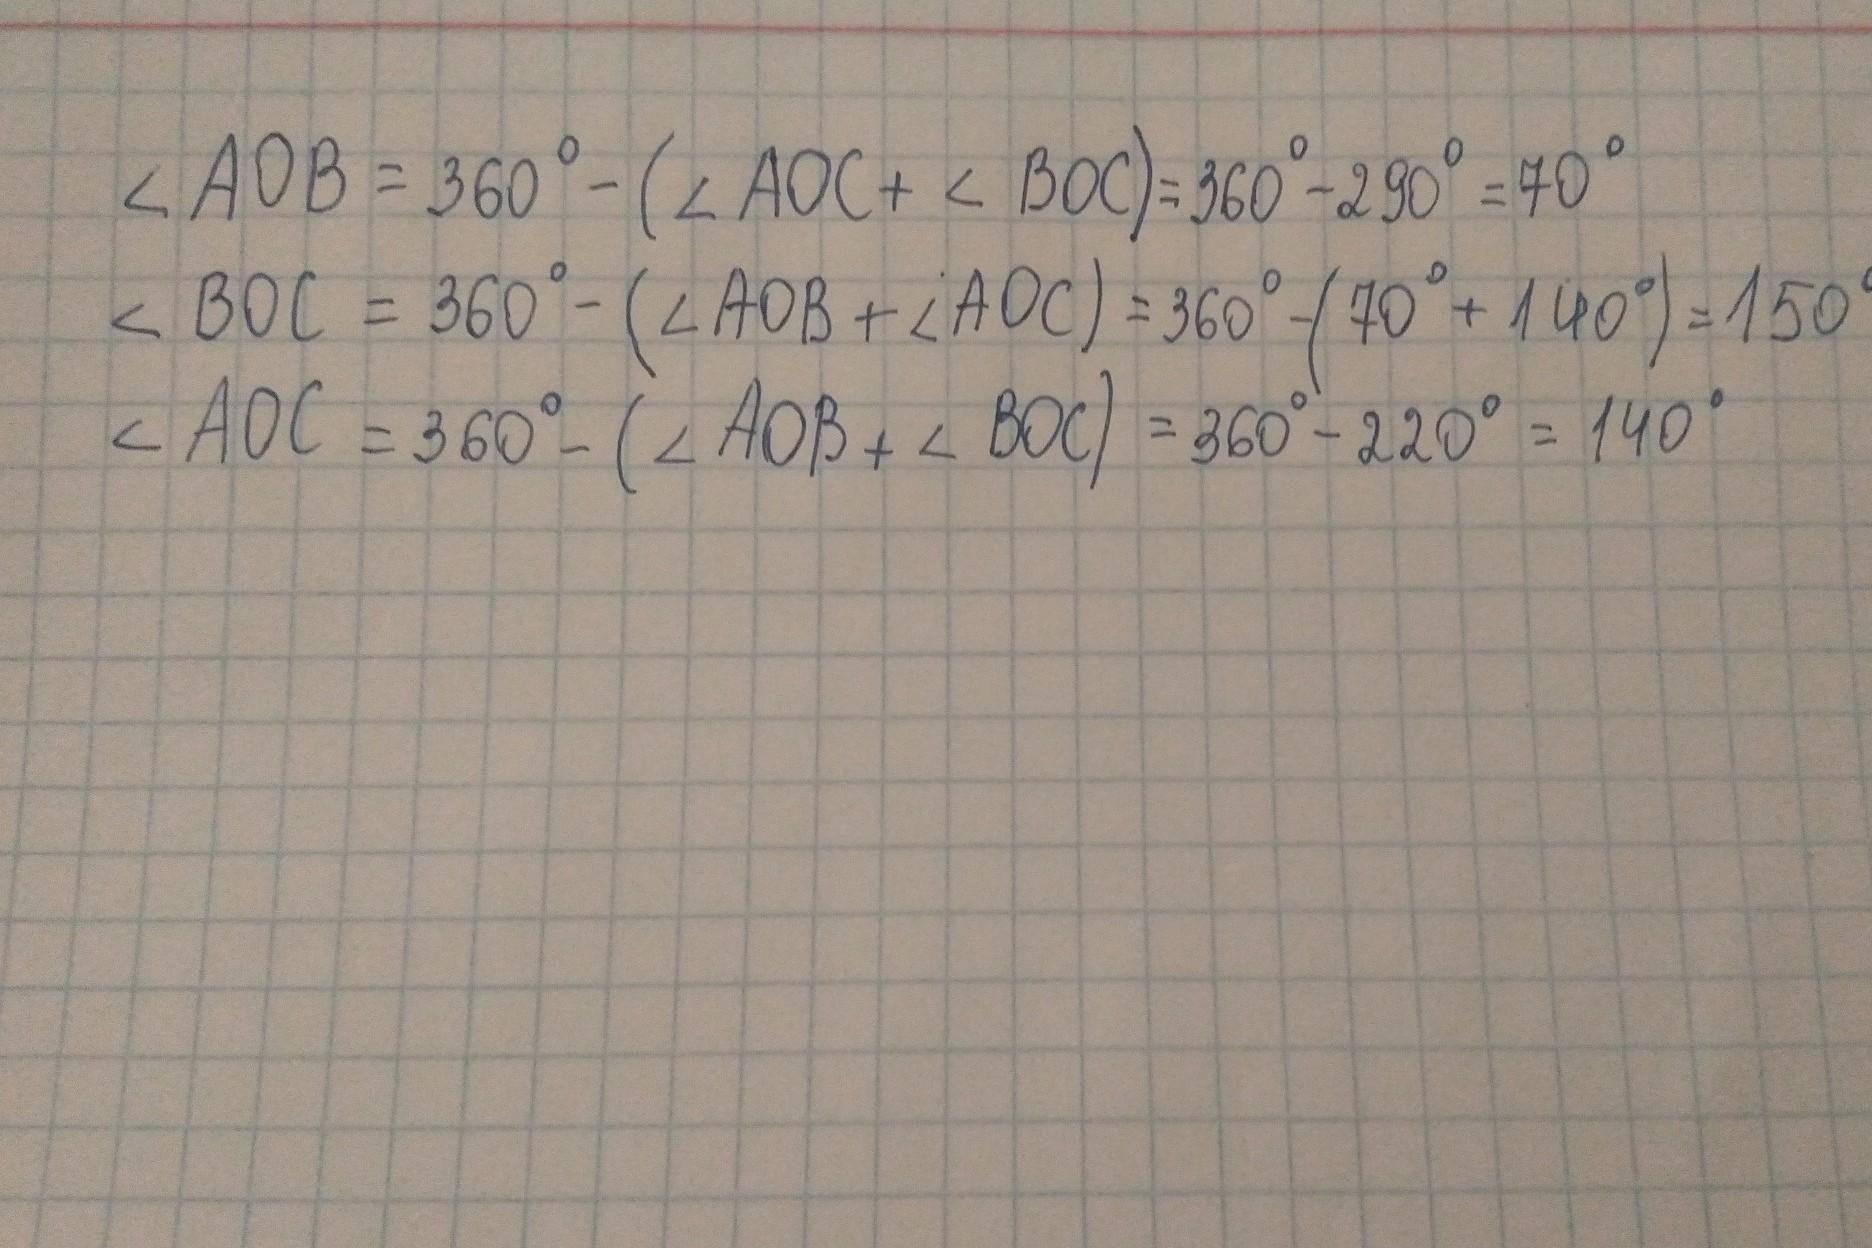 ∠AOB = 360° - (∠AOC + ∠BOC) = 360° - 290° = 70°
∠BOC = 360° - (∠AOB + ∠AOC) = 360° - (70° + 140°) = 150°
∠AOC = 360° - (∠AOB + ∠BOC) = 360° - 220° = 140°